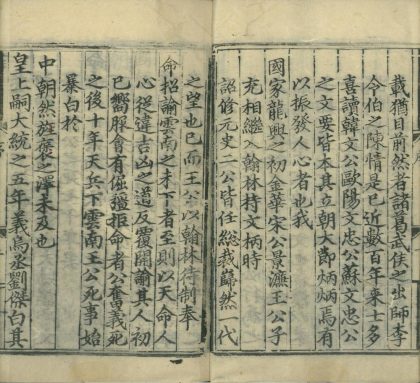 載猶日前然者諸葛武侯之出師李
令伯之陳情是已近數百年來士多
喜讀韓文公歐陽文忠公蘇文忠公
之文要皆本其立朝大節炳炳焉有
以振發人心者也我
國家龍興之初金華宋公景濂王公子
充相繼入翰林持文柄時
詔修元史二公皆任總裁巋然一代
之望也已而王公以翰林待制奉
命招諭雲南之未下者至則以天命人
心從違吉凶之道反覆開諭其人初
已嚮服會有
拒命者公奮義死
之後十年天兵下雲南王公死事始
暴白於
中朝然旌褒之澤未及也
皇上嗣大統之五年義烏丞劉傑白其